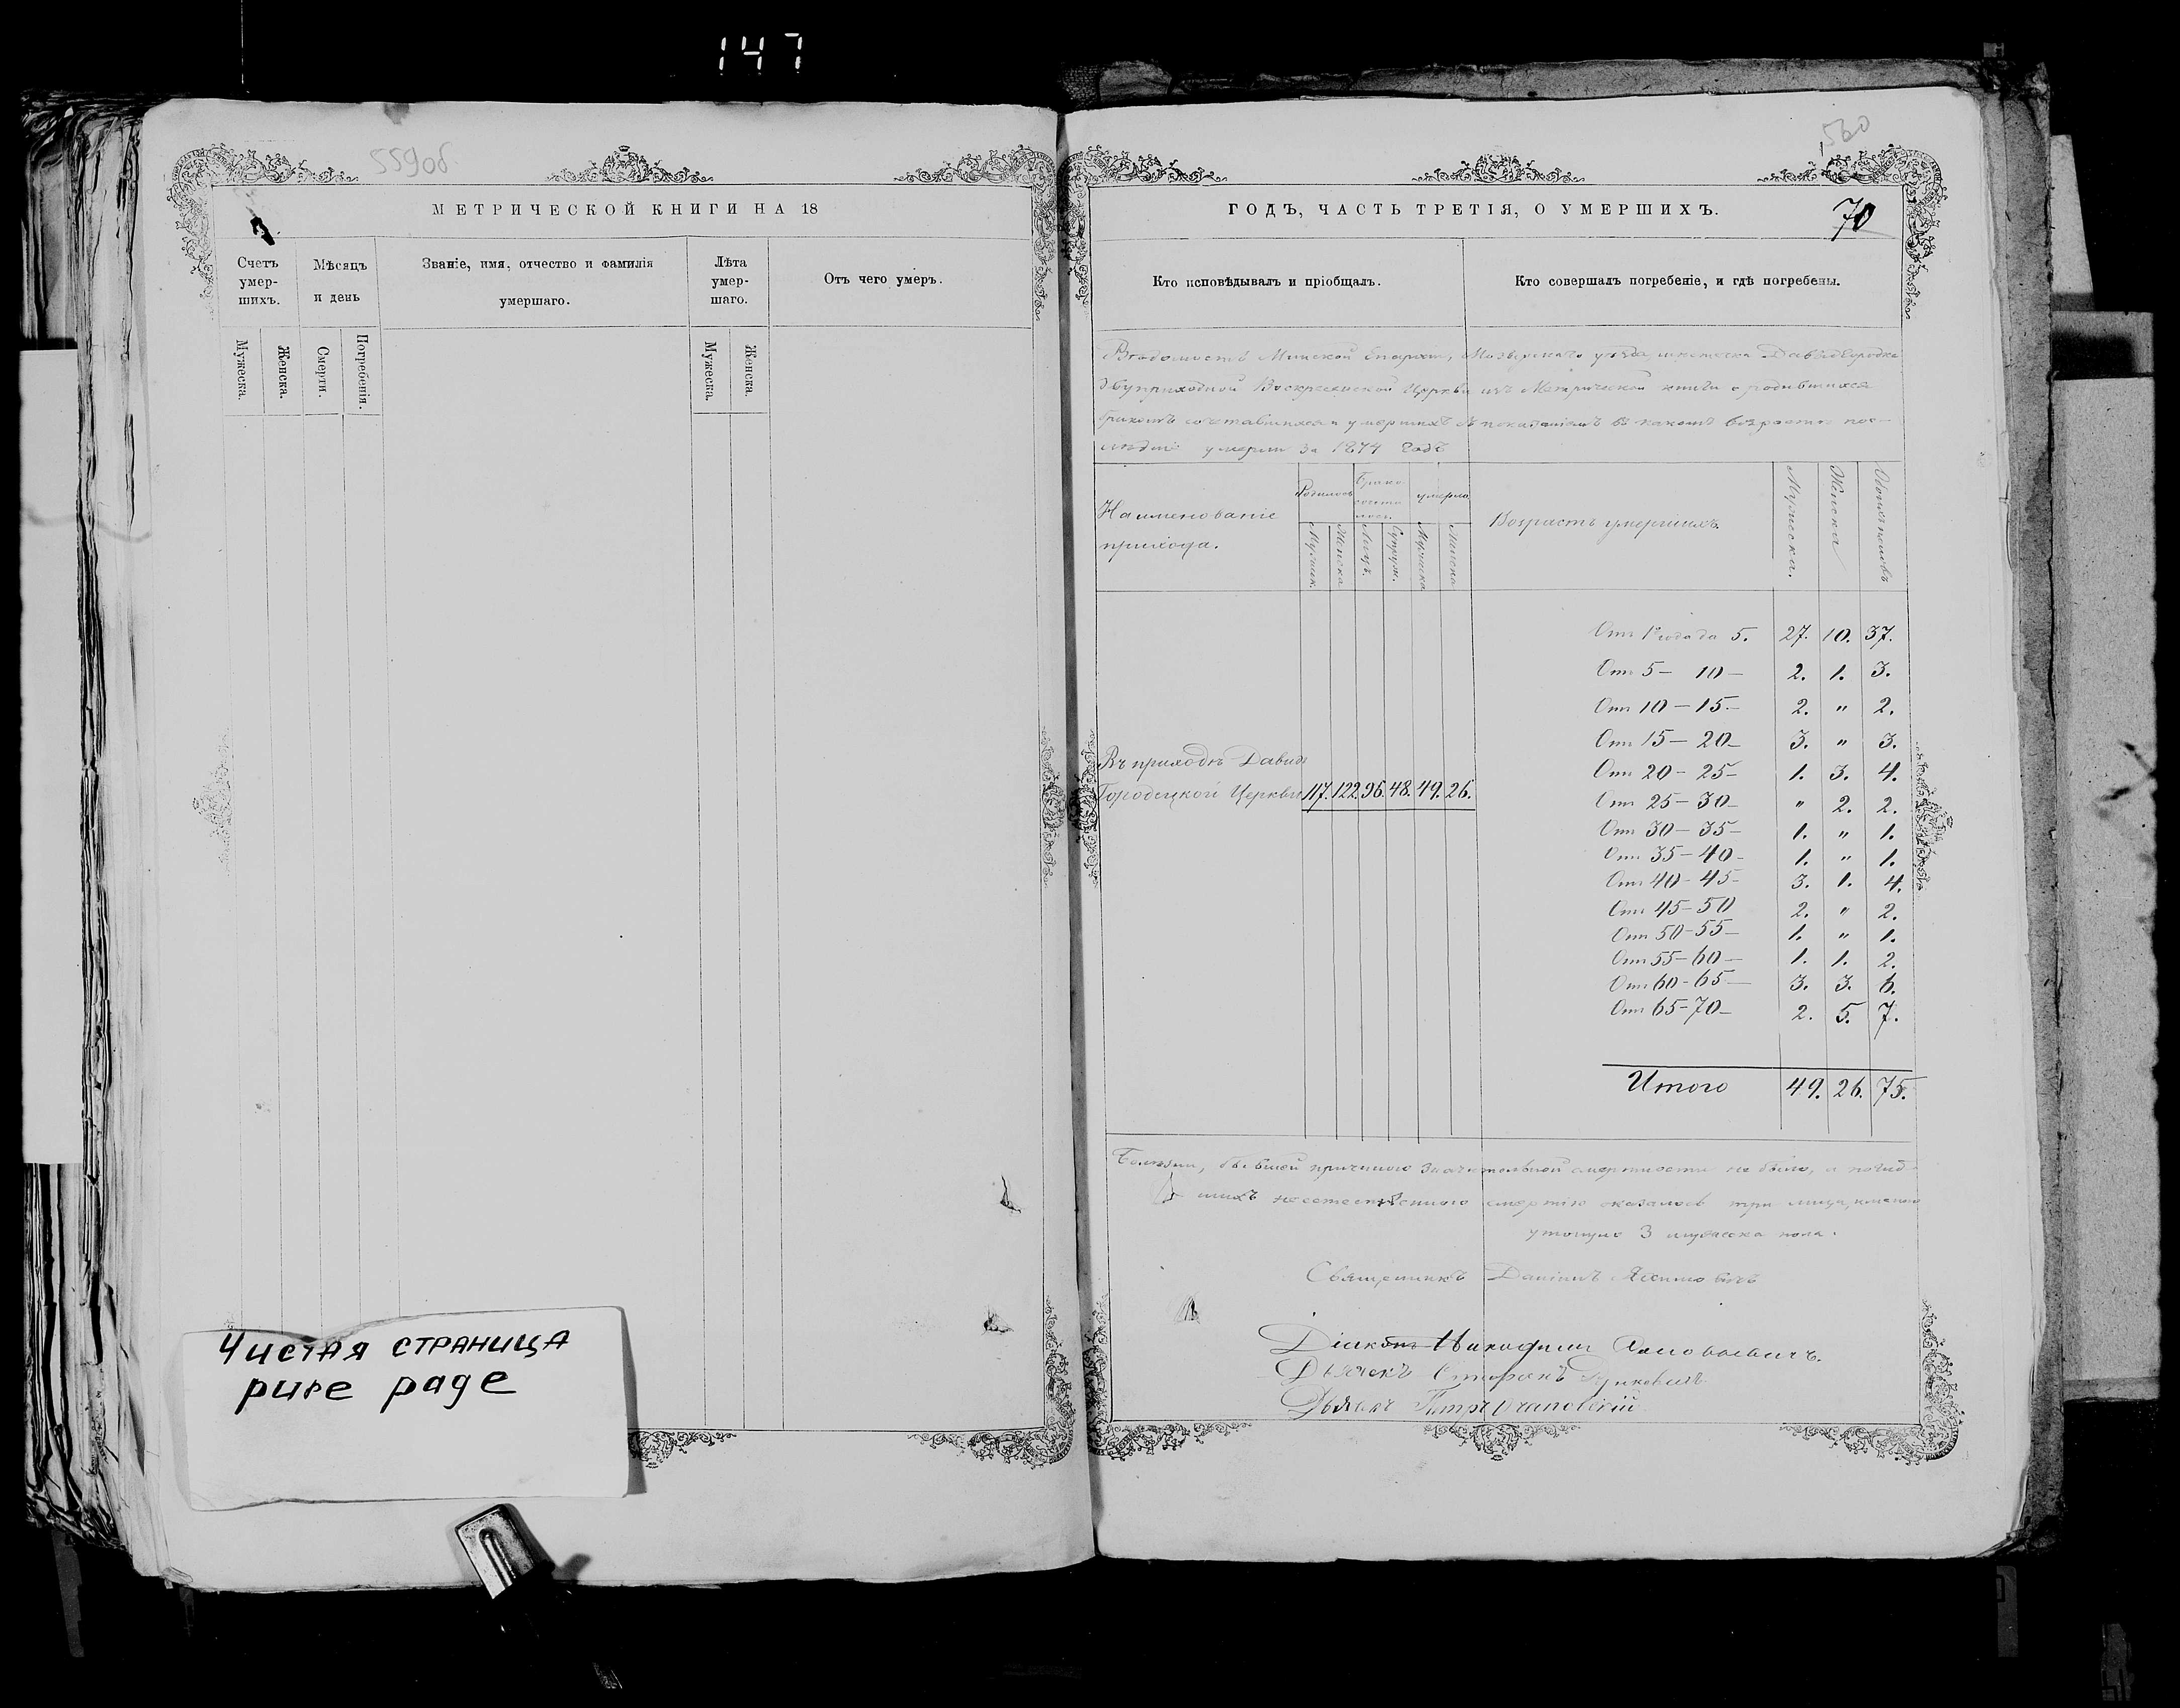 147
559об
МЕТРИЧЕСКОЙ КНИГИ НА 18
Счетъ умер-шихъ.
Мѣсяцъ и день
Званіе, имя, отчество и фамилія умершаго.
Лѣта умер-шаго.
Отъ чего умеръ.
Мужеска.
Женска.
Смерти.
Погребенія.
Мужеска.
Женска.
Чистая страница
pure page
560
ГОДЪ, ЧАСТЬ ТРЕТІЯ, О УМЕРШИХЪ.
70
Кто исповѣдывалъ и пріобщалъ.
Кто совершалъ погребеніе, и гдѣ погребены.
Вѣдомость Минской Епархіи, Мозырскаго уѣзда, мѣстечка Давидгородка
двуприходной Воскресенской Церкви изъ Метрической книги о родившихся
бракомъ сочетавшихся и умершихъ съ показаніемъ въ какомъ возрастѣ пос-
лѣдніе умерли за 1874 годъ
Наименованіе
прихода.
Родилось
Брако
сочета
лось
умерло
Мужеск.
Женска
Лицъ.
Супруж.
Мужеска
Женска
Возрастъ умершихъ.
Мужеска.
Женска
Обоихъ половъ
Отъ 1го года до 5. 27. 10. 37.
Отъ 5 - 10 - 2. 1. 3.
Отъ 10 - 15 - 2. " 2.
Отъ 15 - 20 - 3. " 3.
Отъ 20 - 25 - 1. 3. 4.
Отъ 25 - 30 - " 2. 2.
Отъ 30 - 35 - 1. " 1.
Отъ 35 - 40 - 1. " 1.
Отъ 40 - 45 - 3. 1. 4.
Отъ 45 - 50 2. " 2.
Отъ 50 - 55 - 1. " 1.
Отъ 55 - 60 - 1. 1. 2.
Отъ 60 - 65 - 3. 3. 6.
Отъ 65 - 70 - 2. 5. 7.
Въ приходѣ Давид
Городецкой Церкви 117. 122. 96. 48. 49. 26.
Итого 49. 26. 75.
Болѣзни, бывшей причиною значительной смертности не было, а погиб-
шихъ неестественною смертію оказалось три лица, именно
утонуло 3 мужеска пола.
Священникъ Даніилъ
Діаконъ Никодимъ
Дьячекъ Стефанъ
Дьячекъ Петръ